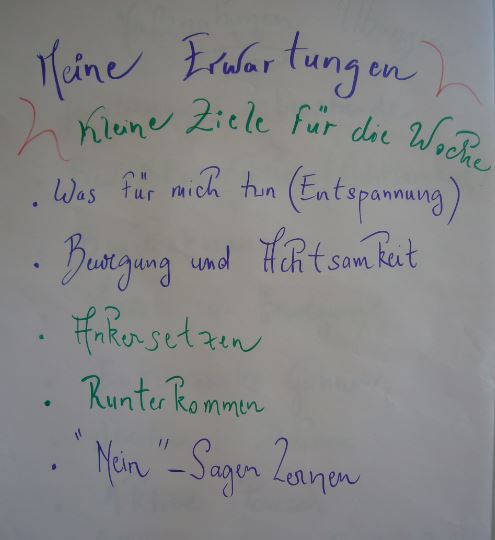 Meine Erwartungen
Kleine Ziele für die Woche
• Was für mich tun (Entspannung)
• Bewegung und Achtsamkeit
• Ankersetzen
• Runterkommen
• "Nein"-Sagen Lernen